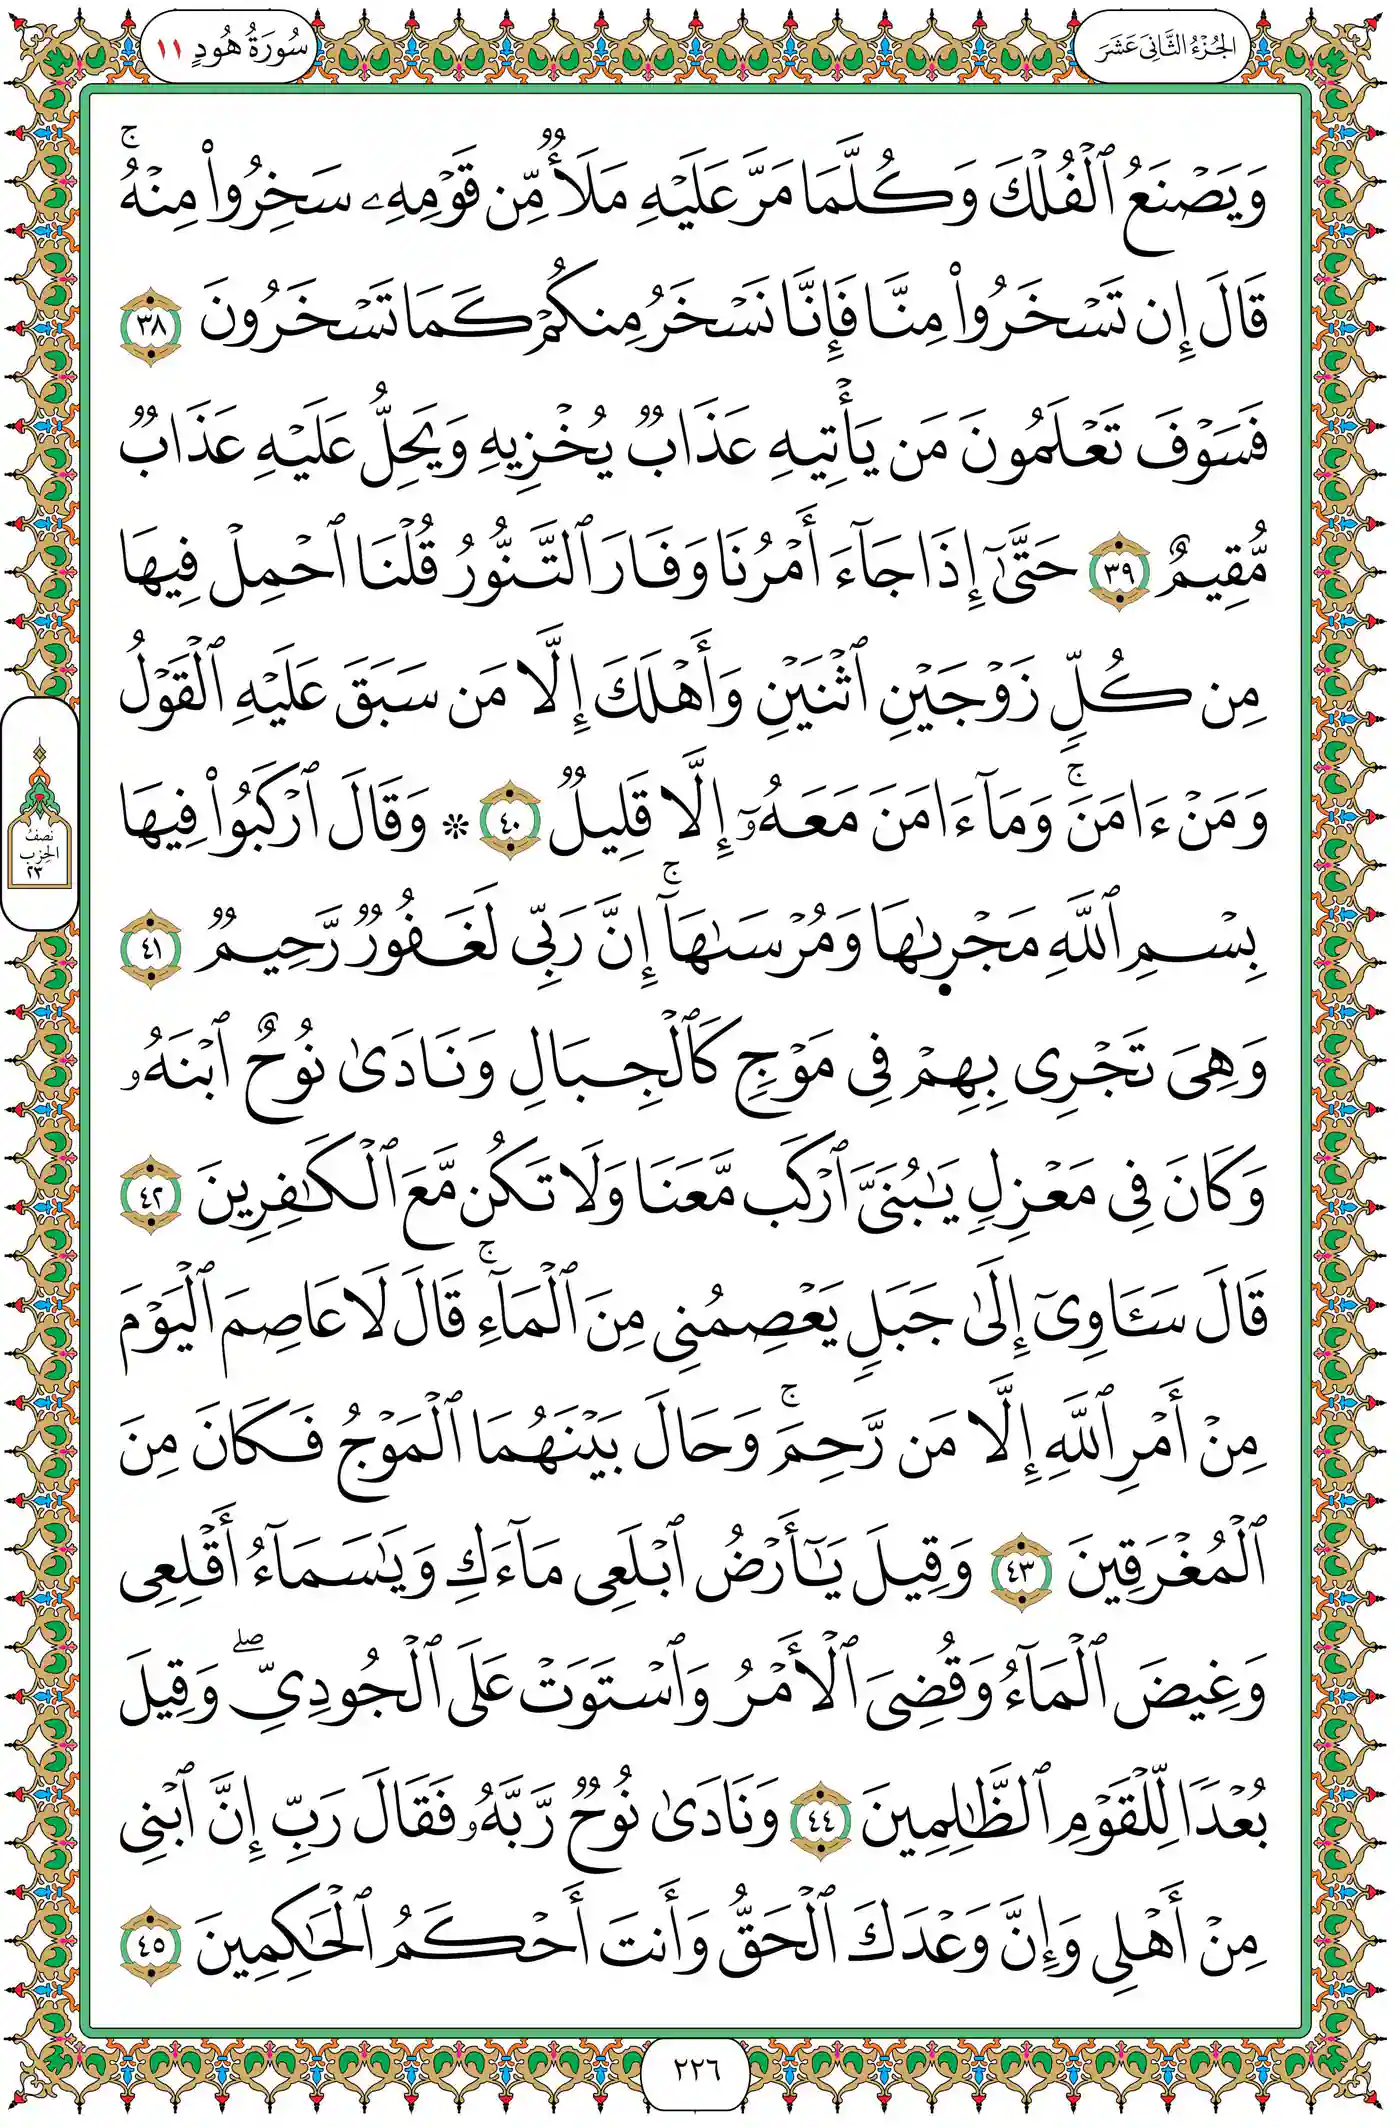 الجُزْءُ الثَّانِيَ عَشَرَ
سُورَةُ هُودٍ ١١
وَيَصۡنَعُ ٱلۡفُلۡكَ وَكُلَّمَا مَرَّ عَلَيۡهِ مَلَأٞ مِّن قَوۡمِهِۦ سَخِرُواْ مِنۡهُۚ
قَالَ إِن تَسۡخَرُواْ مِنَّا فَإِنَّا نَسۡخَرُ مِنكُمۡ كَمَا تَسۡخَرُونَ ٣٨
فَسَوۡفَ تَعۡلَمُونَ مَن يَأۡتِيهِ عَذَابٞ يُخۡزِيهِ وَيَحِلُّ عَلَيۡهِ عَذَابٞ
مُّقِيمٌ ٣٩ حَتَّىٰٓ إِذَا جَآءَ أَمۡرُنَا وَفَارَ ٱلتَّنُّورُ قُلۡنَا ٱحۡمِلۡ فِيهَا
مِن كُلّٖ زَوۡجَيۡنِ ٱثۡنَيۡنِ وَأَهۡلَكَ إِلَّا مَن سَبَقَ عَلَيۡهِ ٱلۡقَوۡلُ
وَمَنۡ ءَامَنَۚ وَمَآ ءَامَنَ مَعَهُۥٓ إِلَّا قَلِيلٞ ٤٠ ۞ وَقَالَ ٱرۡكَبُواْ فِيهَا
بِسۡمِ ٱللَّهِ مَجۡر۪ىٰهَا وَمُرۡسَىٰهَآۚ إِنَّ رَبِّي لَغَفُورٞ رَّحِيمٞ ٤١
وَهِيَ تَجۡرِي بِهِمۡ فِي مَوۡجٖ كَٱلۡجِبَالِ وَنَادَىٰ نُوحٌ ٱبۡنَهُۥ
وَكَانَ فِي مَعۡزِلٖ يَٰبُنَيَّ ٱرۡكَب مَّعَنَا وَلَا تَكُن مَّعَ ٱلۡكَٰفِرِينَ ٤٢
قَالَ سَـَٔاوِيٓ إِلَىٰ جَبَلٖ يَعۡصِمُنِي مِنَ ٱلۡمَآءِۚ قَالَ لَا عَاصِمَ ٱلۡيَوۡمَ
مِنۡ أَمۡرِ ٱللَّهِ إِلَّا مَن رَّحِمَۚ وَحَالَ بَيۡنَهُمَا ٱلۡمَوۡجُ فَكَانَ مِنَ
ٱلۡمُغۡرَقِينَ ٤٣ وَقِيلَ يَٰٓأَرۡضُ ٱبۡلَعِي مَآءَكِ وَيَٰسَمَآءُ أَقۡلِعِي
وَغِيضَ ٱلۡمَآءُ وَقُضِيَ ٱلۡأَمۡرُ وَٱسۡتَوَتۡ عَلَى ٱلۡجُودِيِّۖ وَقِيلَ
بُعۡدٗا لِّلۡقَوۡمِ ٱلظَّٰلِمِينَ ٤٤ وَنَادَىٰ نُوحٞ رَّبَّهُۥ فَقَالَ رَبِّ إِنَّ ٱبۡنِي
مِنۡ أَهۡلِي وَإِنَّ وَعۡدَكَ ٱلۡحَقُّ وَأَنتَ أَحۡكَمُ ٱلۡحَٰكِمِينَ ٤٥
نصف
الحزب
٢٣
٢٢٦